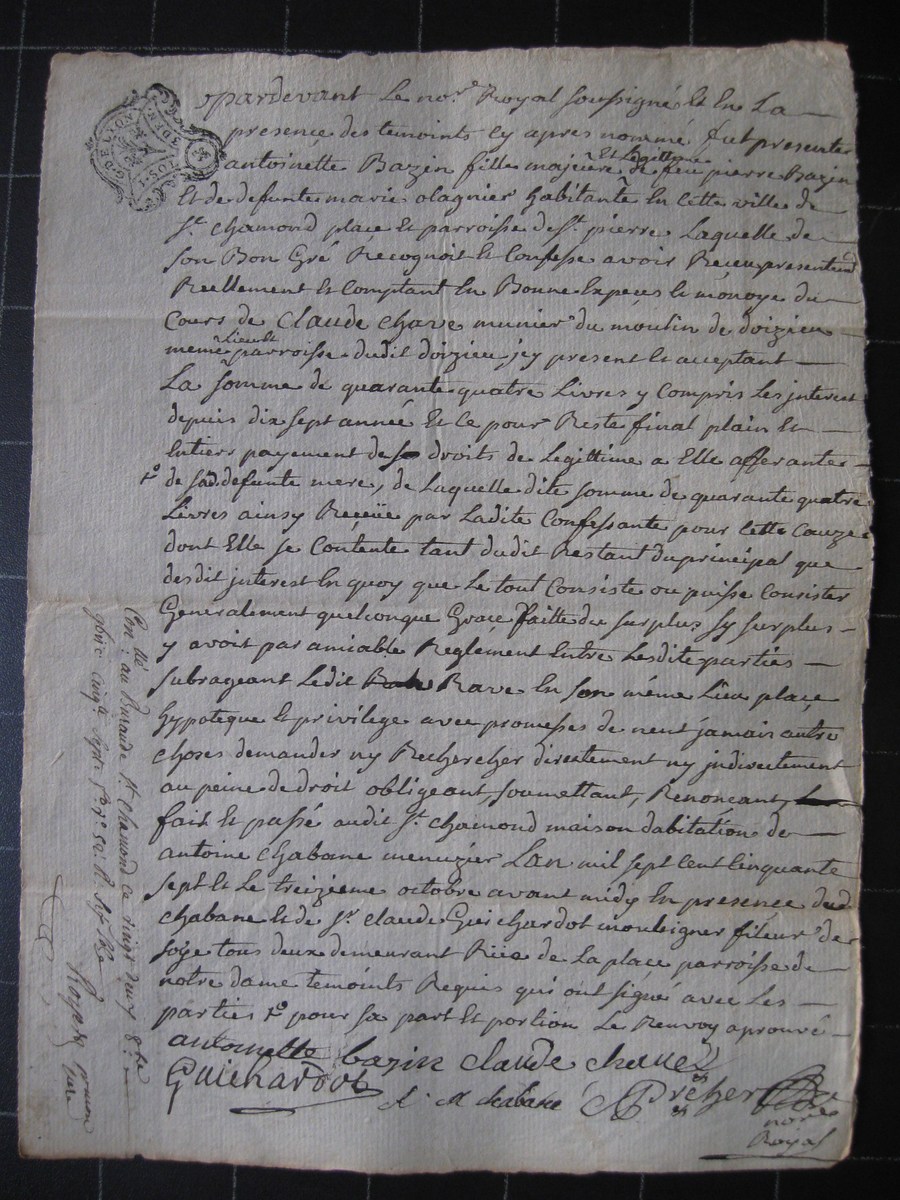 pardevant Le no.re Royal soussigné Et En La
presence des temoints cy apres nommé fut presenter
antoinette Bazin fille majeure Et Legittime de feu pierre Bazin
Et de defunte marie olagnier habitante En cette ville de
St. chamond place Et parroisse de St. pierre Laquelle de
son Bon Gré Recognoit Et Confesse avoir Reçeu presentemt
Reellement Et Comptant En Bonne Espeçes Et monoye du
Cours de Claude Chave munier du moulin de doizieu
meme Lieu Et parroisse dudit doizieu jcy present Et acceptant
La somme de quarante quatre Livres y Compris Les jnterest
depuis dix sept année Et Ce pour Reste final plain Et
Entier payement de droits de Legittime a Elle afferante
de sad. defunte mere, de Laquelle dite somme de quarante quatre
Livres ainsy Reçeüe par Ladite Confessante pour Cette Cauze
dont Elle se Contente tant dudit Restant du principal que
desdit jnterest En quoy que Le tout Consiste ou puisse Consister
Generalement quelconque Grace faitte du surplus sy surplus
y avoit par amiable Reglement Entre Lesdite parties
subrageant Ledit Rave En son même Lieu place
hypoteque Et privilege avec promesses de nent jamais autre
choses demander ny Rechercher directement ny jndirectement
au peine de droit obligeant, soumettant, Renonçant,
fait Et passé audit St. chamond maison dabitation de
antoine Chabane menuzier Lan mil sept Cent Cinquante
sept Et Le treizieme octobre avant midy En presence dud.
Chabane Et de Sr. Claude Guichardot moulignier fileur de
soye tous deux demeurant Riere de La place parroisse de
notre dame temoints Requis qui ont signé avec Les
parties 1o pour sa part Et portion Le Renvoy aprouvé
antoinette bazin claude chave
Guichardot
chabane
no.re
Royal
Con.llé au Bureau de St. Chamond ce vingt deux 8.bre
DE LYON